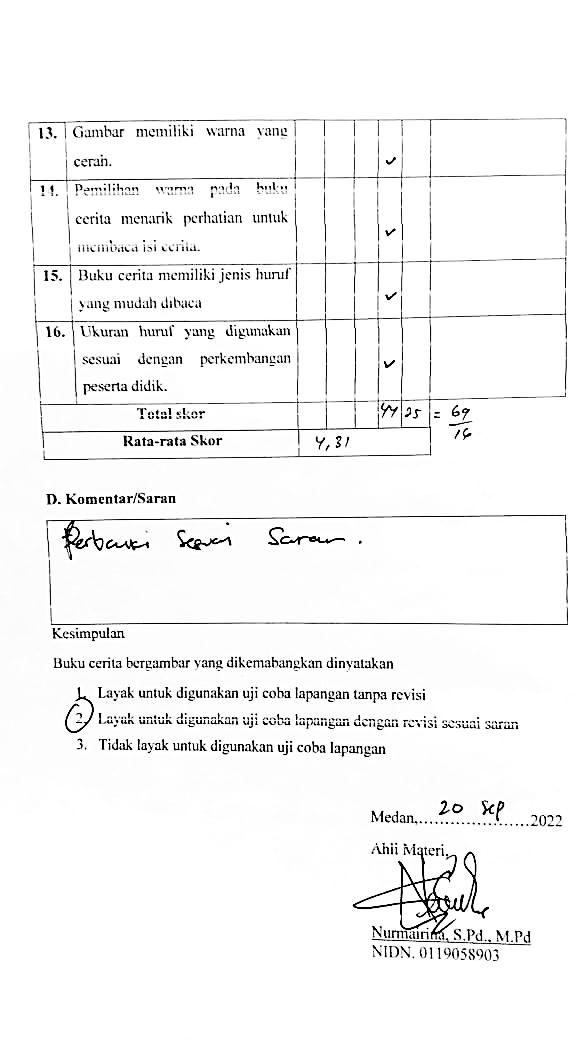 13. Gambar memiliki warna yang
cerah. ✓
14. Pemilihan warna pada buku
cerita menarik perhatian untuk ✓
membaca isi cerita.
15. Buku cerita memiliki jenis huruf
yang mudah dibaca ✓
16. Ukuran huruf yang digunakan
sesuai dengan perkembangan ✓
peserta didik.
Total skor 44 25 = 69/16
Rata-rata Skor 4,31
D. Komentar/Saran
Perbaiki Sesuai Saran.
Kesimpulan
Buku cerita bergambar yang dikemabangkan dinyatakan
1. Layak untuk digunakan uji coba lapangan tanpa revisi
2. Layak untuk digunakan uji coba lapangan dengan revisi sesuai saran
3. Tidak layak untuk digunakan uji coba lapangan
Medan,....20 Sep....2022
Ahli Materi,
Nurmairina, S.Pd., M.Pd
NIDN. 0119058903